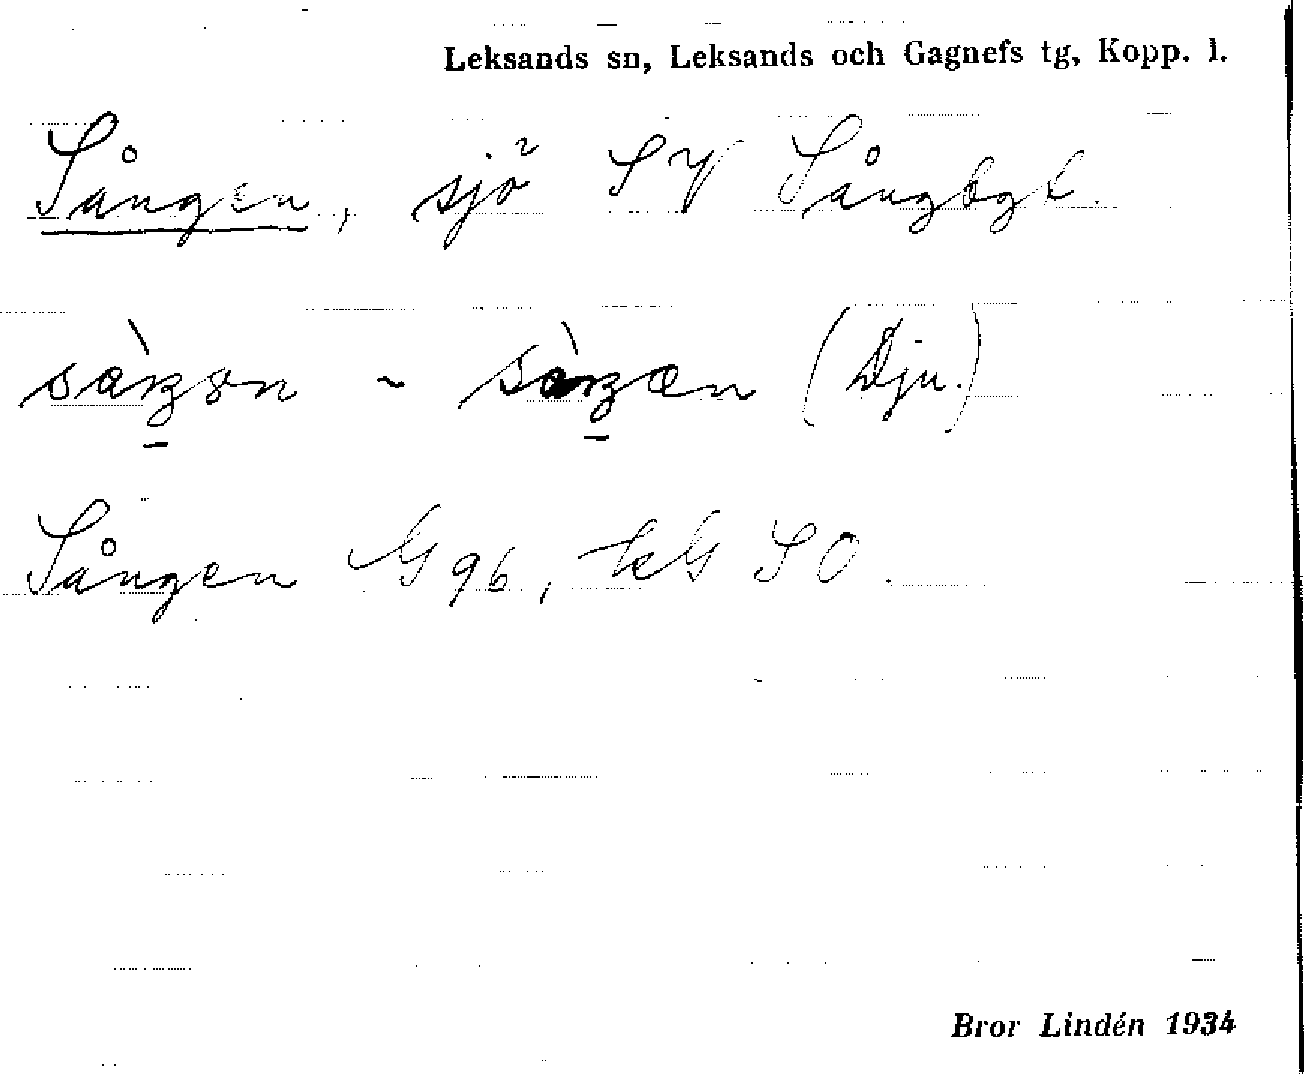 Leksands sn, Leksands och Gagnefs tg, Kopp. l.
Sången, sjö SV Sångbgt.
(Dju.)
Sången G 96, kG SO.
Bror Lindén 1934